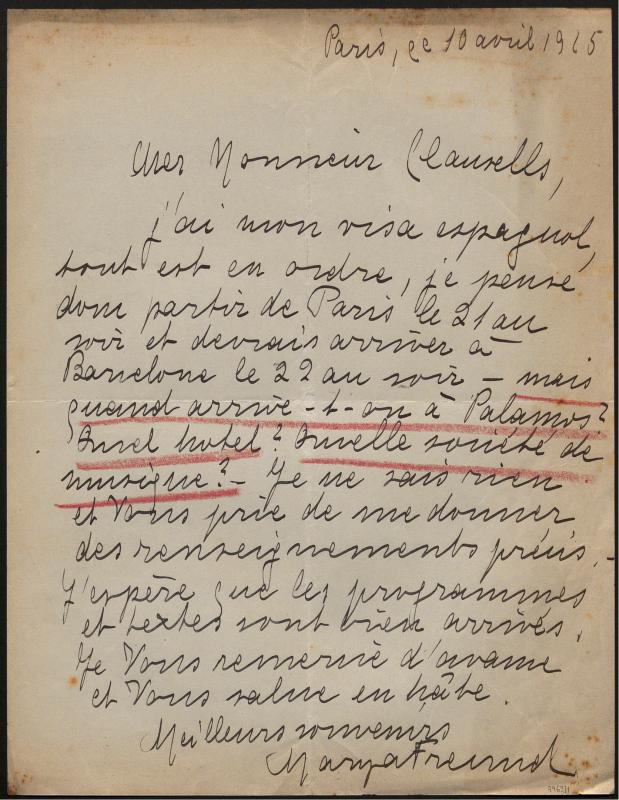 Paris, ce 10 avril 1925
Cher Monsieur Clausells,
j'ai mon visa espagnol,
tout est en ordre, je pense
donc partir de Paris le 21 au
soir et devrais arriver à
Barcelone le 22 au soir – mais
quand arrive-t-on à Palamos?
Quel hotel? Quelle société de
musique? – Je ne sais rien
et Vous prie de me donner
des renseignements précis. –
J'espère que les programmes
et textes sont bien arrivés.
Je Vous remercie d'avance
et Vous salue en hâte.
Meilleurs souvenirs
Marya Freund